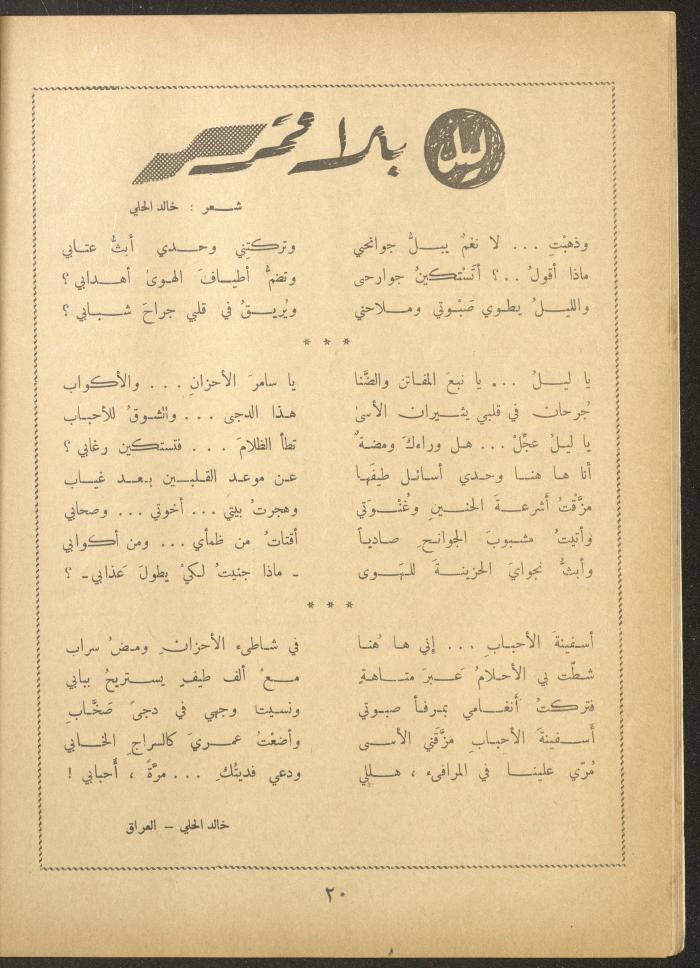 ليل بلا قمر
شعر : خالد الحلي
وذهبْتِ ... لا نغمٌ يبلُّ جوانحي وتركتِني وحدي أبثُّ عتابي
ماذا أقولُ ..؟ أتَسْتكينُ جوارحي وتضمُّ أطيافَ الهوىٰ أهدابي ؟
والليلُ يطوي صَبْوتي وملاحني ويُريقُ في قلبي جراحَ شبابي ؟
* * *
يا ليلُ ... يا نبعَ المفاتن والضَّنا يا سامرَ الأحزانِ ... والأكواب
جُرحان في قلبي يثيران الأسىٰ هذا الدجى ... والشوقُ للأحباب
يا ليلُ عجّلْ ... هل وراءكَ ومضةٌ تطأ الظلامَ ... فتستكين رغابي ؟
أنا ها هنا وحدي أسائل طيفَها عن موعد القلبين بعد غياب
مزَّقتُ أشرعةَ الحنينِ وغُنْوَتي وهجرتُ بيتي ... أخوتي ... وصحابي
وأتيتُ مشبوبَ الجوانحِ صادياً أقتاتُ من ظمأي ... ومن أكوابي
وأبثُّ نجوايَ الحزينةَ للهوى ـ ماذا جنيتُ لكيْ يطولَ عَذابي ـ ؟
* * *
أسفينةَ الأحبابِ ... إني ها هُنا في شاطىء الأحزانِ ومضُ سراب
شطّت بي الأحلامُ عَبرَ متاهةٍ معْ ألف طيفٍ يستريحُ ببابي
فتركتُ أنغامي بمرفأ صبوتي ونسيت وجهي في دجىً صَخَّابِ
أسفينةَ الأحبابِ مزَّقني الأسى وأضعْتُ عمريَ كالسراجِ الخابي
مُرّي علينا في المرافىء ، هللي ودعي فديتُكِ ... مرَّةً ، أحبابي !
خالد الحلي – العراق
٢٠